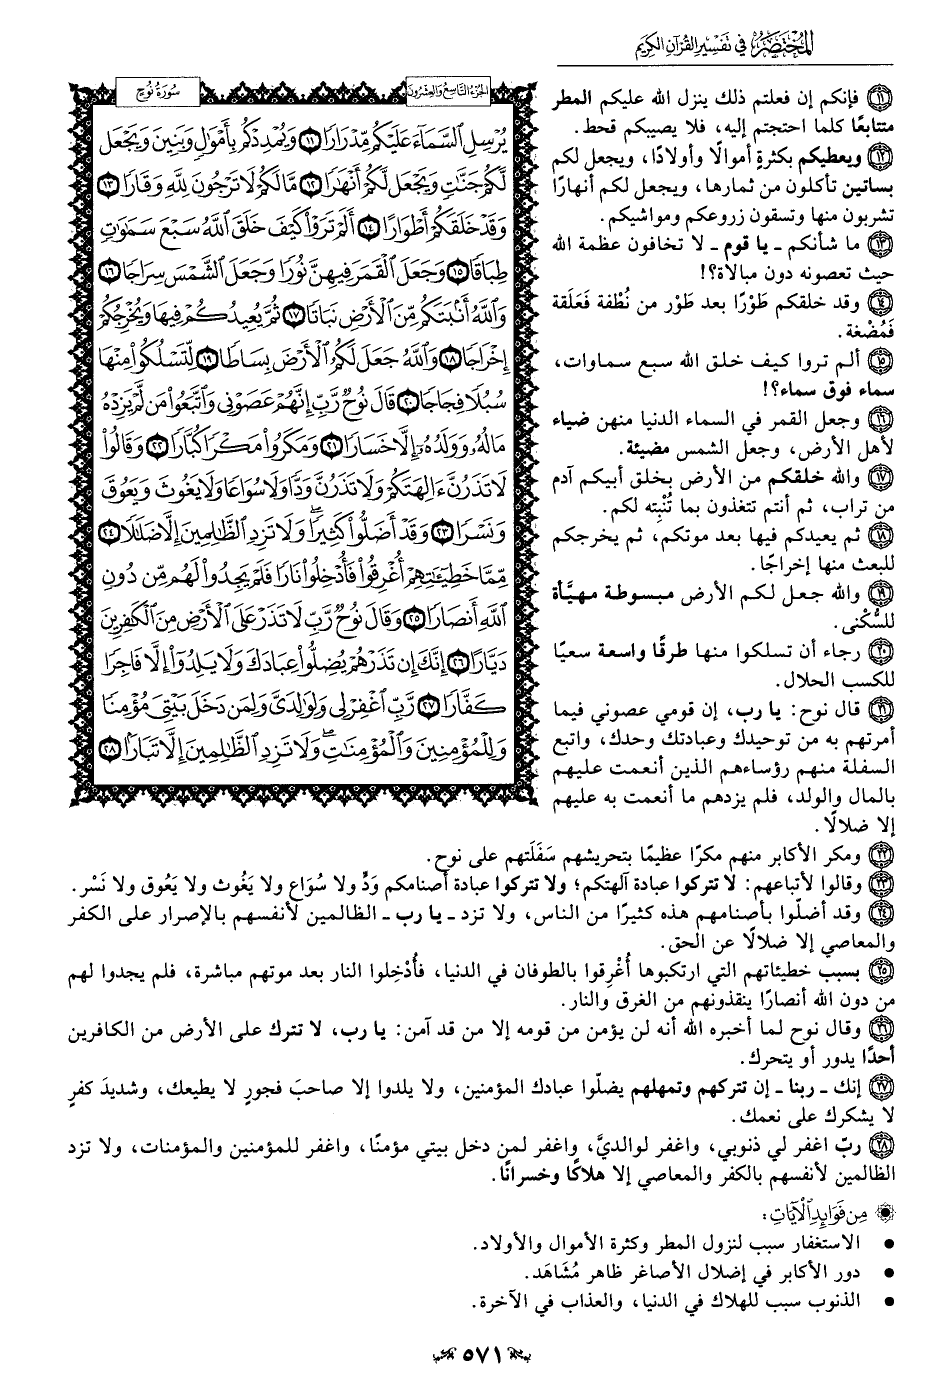 المُخْتَصَرُ في تَفْسِيرِ القُرْآنِ الكَرِيمِ
سُورَةُ نُوحٍ
الجُزْءُ التَّاسِعُ وَالعِشْرُونَ
يُرْسِلِ السَّمَاءَ عَلَيْكُم مِّدْرَارًا ١١ وَيُمْدِدْكُم بِأَمْوَالٍ وَبَنِينَ وَيَجْعَل
لَّكُمْ جَنَّاتٍ وَيَجْعَل لَّكُمْ أَنْهَارًا ١٢ مَّا لَكُمْ لَا تَرْجُونَ لِلَّهِ وَقَارًا ١٣
وَقَدْ خَلَقَكُمْ أَطْوَارًا ١٤ أَلَمْ تَرَوْا كَيْفَ خَلَقَ اللَّهُ سَبْعَ سَمَاوَاتٍ
طِبَاقًا ١٥ وَجَعَلَ الْقَمَرَ فِيهِنَّ نُورًا وَجَعَلَ الشَّمْسَ سِرَاجًا ١٦
وَاللَّهُ أَنبَتَكُم مِّنَ الْأَرْضِ نَبَاتًا ١٧ ثُمَّ يُعِيدُكُمْ فِيهَا وَيُخْرِجُكُمْ
إِخْرَاجًا ١٨ وَاللَّهُ جَعَلَ لَكُمُ الْأَرْضَ بِسَاطًا ١٩ لِّتَسْلُكُوا مِنْهَا
سُبُلًا فِجَاجًا ٢٠ قَالَ نُوحٌ رَّبِّ إِنَّهُمْ عَصَوْنِي وَاتَّبَعُوا مَن لَّمْ يَزِدْهُ
مَالُهُ وَوَلَدُهُ إِلَّا خَسَارًا ٢١ وَمَكَرُوا مَكْرًا كُبَّارًا ٢٢ وَقَالُوا
لَا تَذَرُنَّ آلِهَتَكُمْ وَلَا تَذَرُنَّ وَدًّا وَلَا سُوَاعًا وَلَا يَغُوثَ وَيَعُوقَ
وَنَسْرًا ٢٣ وَقَدْ أَضَلُّوا كَثِيرًا ۖ وَلَا تَزِدِ الظَّالِمِينَ إِلَّا ضَلَالًا ٢٤
مِّمَّا خَطِيئَاتِهِمْ أُغْرِقُوا فَأُدْخِلُوا نَارًا فَلَمْ يَجِدُوا لَهُم مِّن دُونِ
اللَّهِ أَنصَارًا ٢٥ وَقَالَ نُوحٌ رَّبِّ لَا تَذَرْ عَلَى الْأَرْضِ مِنَ الْكَافِرِينَ
دَيَّارًا ٢٦ إِنَّكَ إِن تَذَرْهُمْ يُضِلُّوا عِبَادَكَ وَلَا يَلِدُوا إِلَّا فَاجِرًا
كَفَّارًا ٢٧ رَّبِّ اغْفِرْ لِي وَلِوَالِدَيَّ وَلِمَن دَخَلَ بَيْتِيَ مُؤْمِنًا
وَلِلْمُؤْمِنِينَ وَالْمُؤْمِنَاتِ ۖ وَلَا تَزِدِ الظَّالِمِينَ إِلَّا تَبَارًا ٢٨
١١ فإنكم إن فعلتم ذلك ينزل الله عليكم المطر
متتابعًا كلما احتجتم إليه، فلا يصيبكم قحط.
١٢ ويعطيكم بكثرةٍ أموالًا وأولادًا، ويجعل لكم
بساتين تأكلون من ثمارها، ويجعل لكم أنهارًا
تشربون منها وتسقون زروعكم ومواشيكم.
١٣ ما شأنكم ـ يا قوم ـ لا تخافون عظمة الله
حيث تعصونه دون مبالاة؟!
١٤ وقد خلقكم طَوْرًا بعد طَوْر من نُطْفة فَعَلَقة
فَمُضْغة.
١٥ ألم تروا كيف خلق الله سبع سماوات،
سماء فوق سماء؟!
١٦ وجعل القمر في السماء الدنيا منهن ضياء
لأهل الأرض، وجعل الشمس مضيئة.
١٧ والله خلقكم من الأرض بخلق أبيكم آدم
من تراب، ثم أنتم تتغذون بما تُنْبِته لكم.
١٨ ثم يعيدكم فيها بعد موتكم، ثم يخرجكم
للبعث منها إخراجًا.
١٩ والله جعل لكم الأرض مبسوطة مهيَّأة
للسُّكْنى.
٢٠ رجاء أن تسلكوا منها طرقًا واسعة سعيًا
للكسب الحلال.
٢١ قال نوح: يا رب، إن قومي عصوني فيما
أمرتهم به من توحيدك وعبادتك وحدك، واتبع
السفلة منهم رؤساءهم الذين أنعمت عليهم
بالمال والولد، فلم يزدهم ما أنعمت به عليهم
إلا ضلالًا.
٢٢ ومكر الأكابر منهم مكرًا عظيمًا بتحريشهم سَفَلَتهم على نوح.
٢٣ وقالوا لأتباعهم: لا تتركوا عبادة آلهتكم؛ ولا تتركوا عبادة أصنامكم وَدٍّ ولا سُوَاع ولا يَغُوث ولا يَعُوق ولا نَسْر.
٢٤ وقد أضلّوا بأصنامهم هذه كثيرًا من الناس، ولا تزد ـ يا رب ـ الظالمين لأنفسهم بالإصرار على الكفر
والمعاصي إلا ضلالًا عن الحق.
٢٥ بسبب خطيئاتهم التي ارتكبوها أُغْرِقوا بالطوفان في الدنيا، فأُدْخِلوا النار بعد موتهم مباشرة، فلم يجدوا لهم
من دون الله أنصارًا ينقذونهم من الغرق والنار.
٢٦ وقال نوح لما أخبره الله أنه لن يؤمن من قومه إلا من قد آمن: يا رب، لا تترك على الأرض من الكافرين
أحدًا يدور أو يتحرك.
٢٧ إنك ـ ربنا ـ إن تتركهم وتمهلهم يضلّوا عبادك المؤمنين، ولا يلدوا إلا صاحبَ فجورٍ لا يطيعك، وشديدَ كفرٍ
لا يشكرك على نعمك.
٢٨ ربّ اغفر لي ذنوبي، واغفر لوالديَّ، واغفر لمن دخل بيتي مؤمنًا، واغفر للمؤمنين والمؤمنات، ولا تزد
الظالمين لأنفسهم بالكفر والمعاصي إلا هلاكًا وخسرانًا.
مِن فَوَائِدِ الآيَاتِ:
• الاستغفار سبب لنزول المطر وكثرة الأموال والأولاد.
• دور الأكابر في إضلال الأصاغر ظاهر مُشَاهَد.
• الذنوب سبب للهلاك في الدنيا، والعذاب في الآخرة.
٥٧١